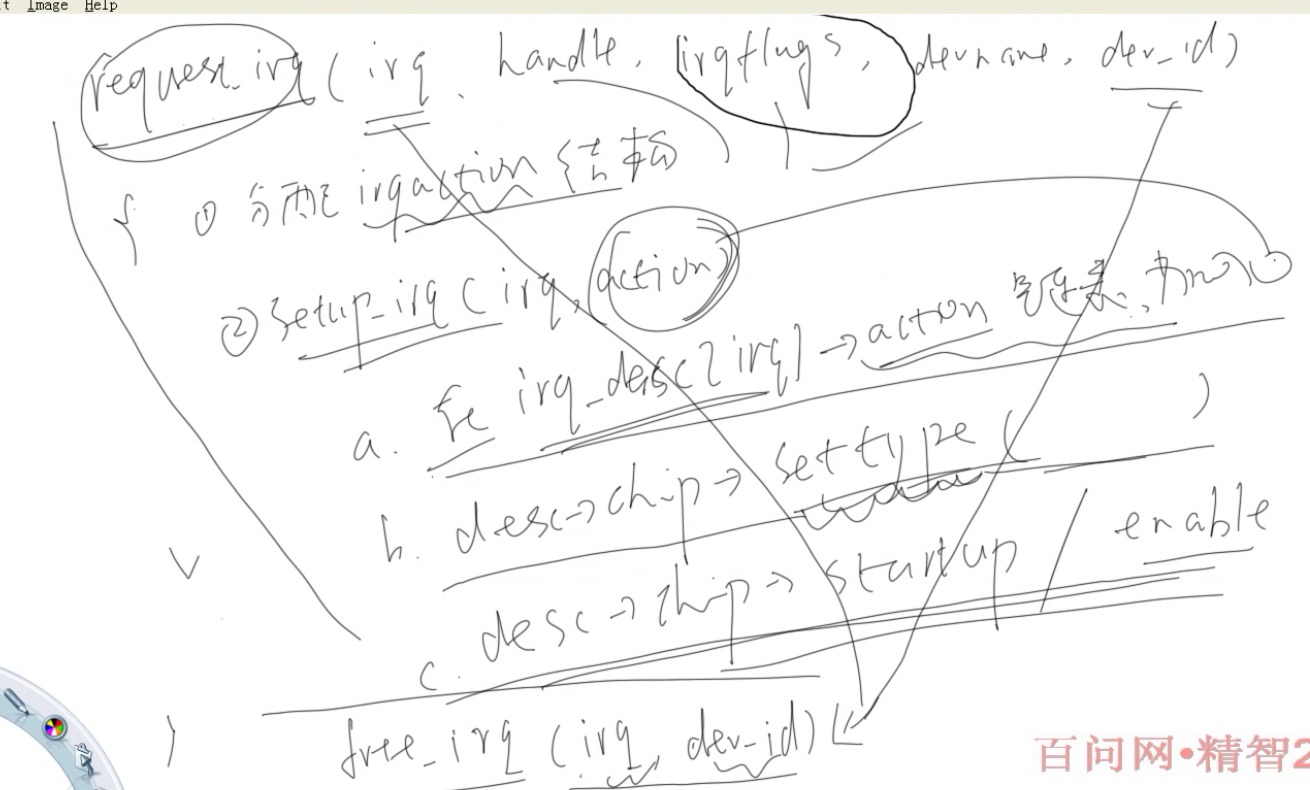 Image Help
request_irq ( irq, handle, irqflugs, devname, dev_id)
{ ① 分配 irqaction 结构
② setup_irq ( irq, action)
a. 在 irq_desc[irq] → action 链表,加入
b. desc→chip→settype ( )
c. desc→chip→startup / enable
}
free_irq (irq, dev_id)
百问网•精智2